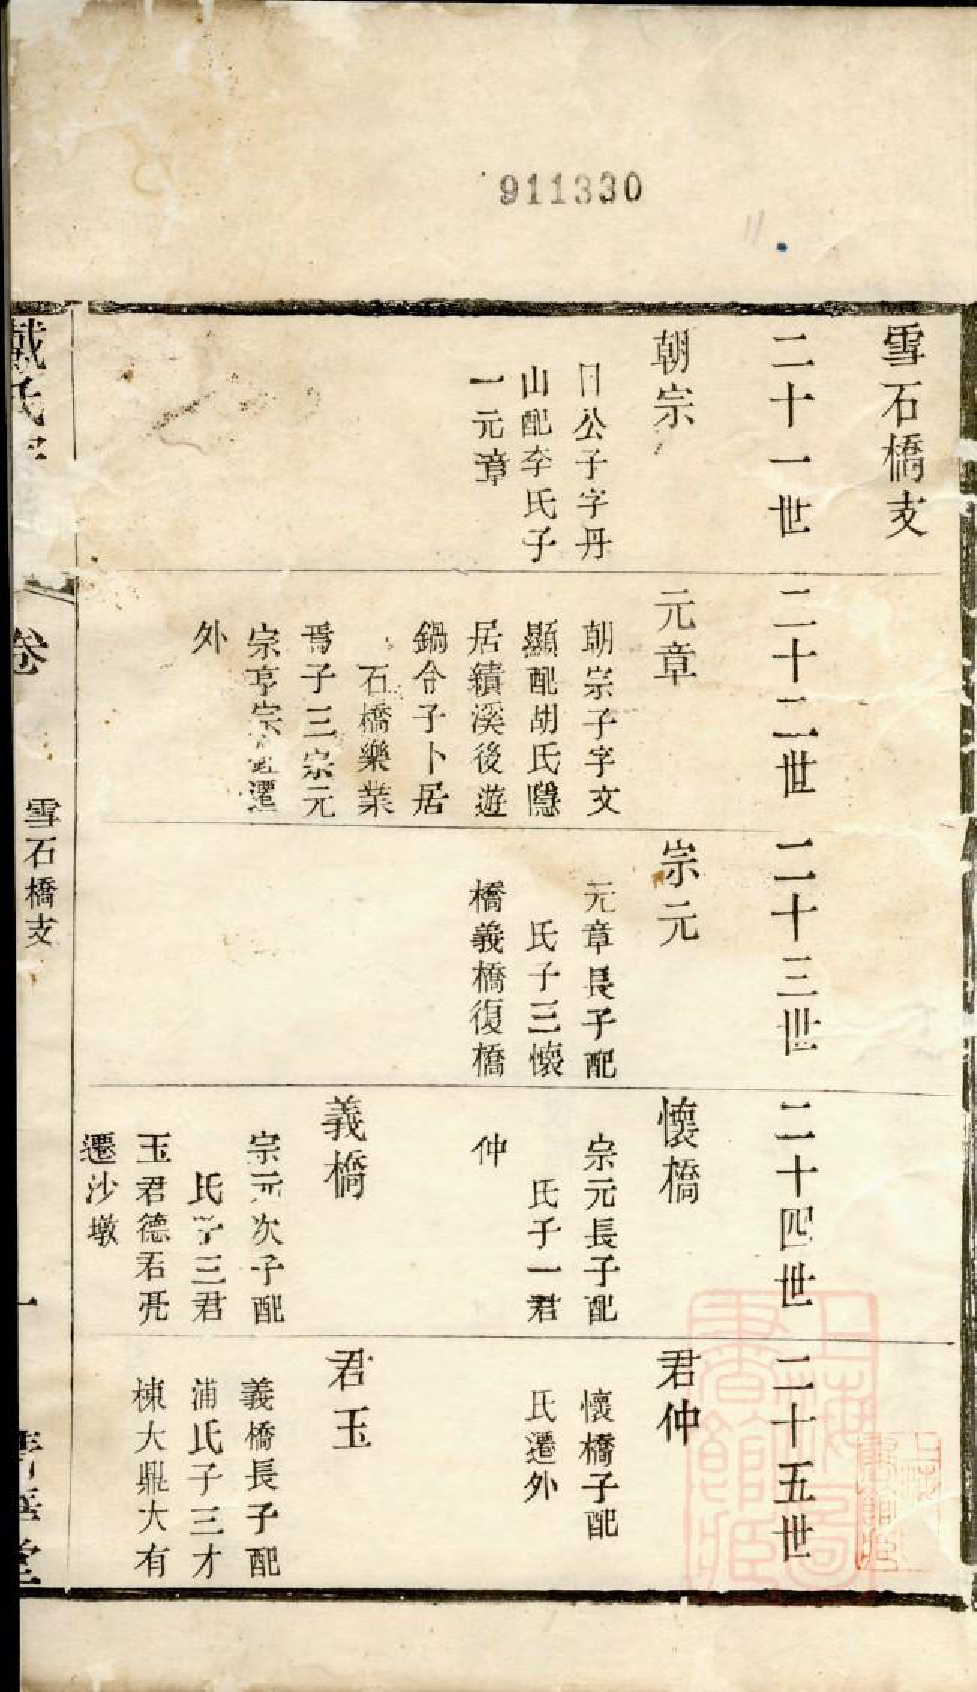 911330
雪石橋支
二十一世
朝宗
日公子字丹
山配李氏子
一元章
二十二世
元章
朝宗子字文
顯配胡氏隱
居績溪後遊
錫令子卜居
石橋樂業
焉子三宗元
宗亨宗遷
外
二十三世
宗元
元章長子配
氏子三懷
橋義橋復橋
二十四世
懷橋
宗元長子配
氏子一君
仲
義橋
宗元次子配
氏子三君
玉君德君亮
遷沙墩
二十五世
君仲
懷橋子配
氏遷外
君玉
義橋長子配
浦氏子三才
棟大鼎大有
戴氏
卷
雪石橋支
一
堂
上海圖書館藏
上海圖書館藏